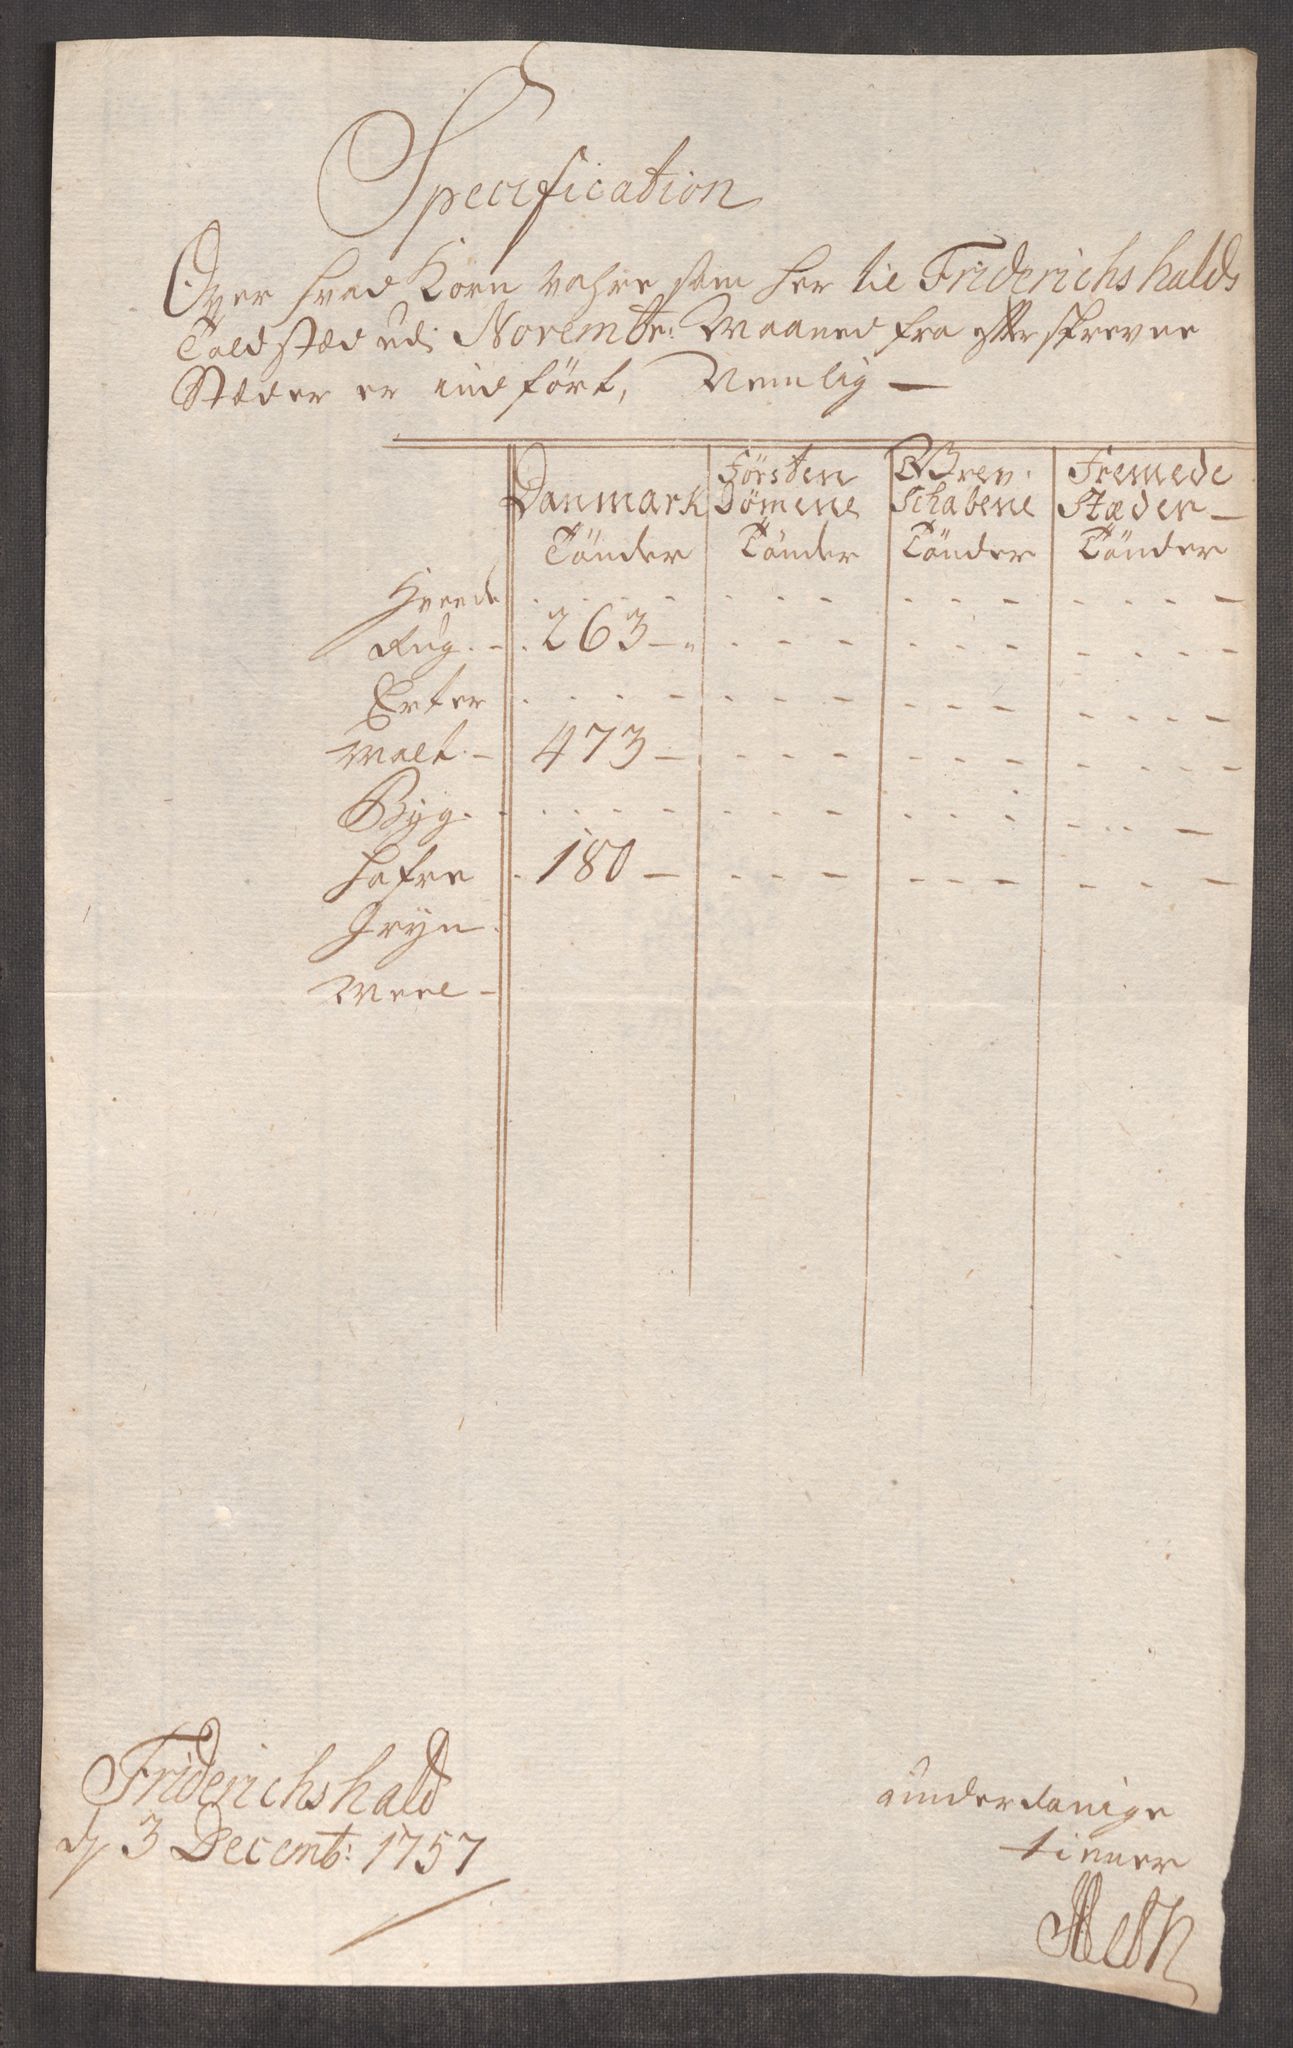 Specification
Over hvad Korn vahre som her til Friderichshalds
Told stæd udi Novembr: Maaned fra efterskrevne
Stæder er indført, Nemlig —
Danmark Försten Grev. Fremede
Dömene Schabene Stæder —
Tönder Tönder Tönder Tönder
Hvede . . . . . . . . - - - - - - -
Rug. - . 263 - " . - - - - - - - - -
Erter . . . . - - - - - - - - - -
Malt. - 473 - - - - - - - - - - -
Byg. . . . . . - - - - . . . - . . -
Hafre . 180 - - - - - - - - - -
Gryn.
Meel -
Friderichshald
d 3 Decemb: 1757
underdanige
tienner